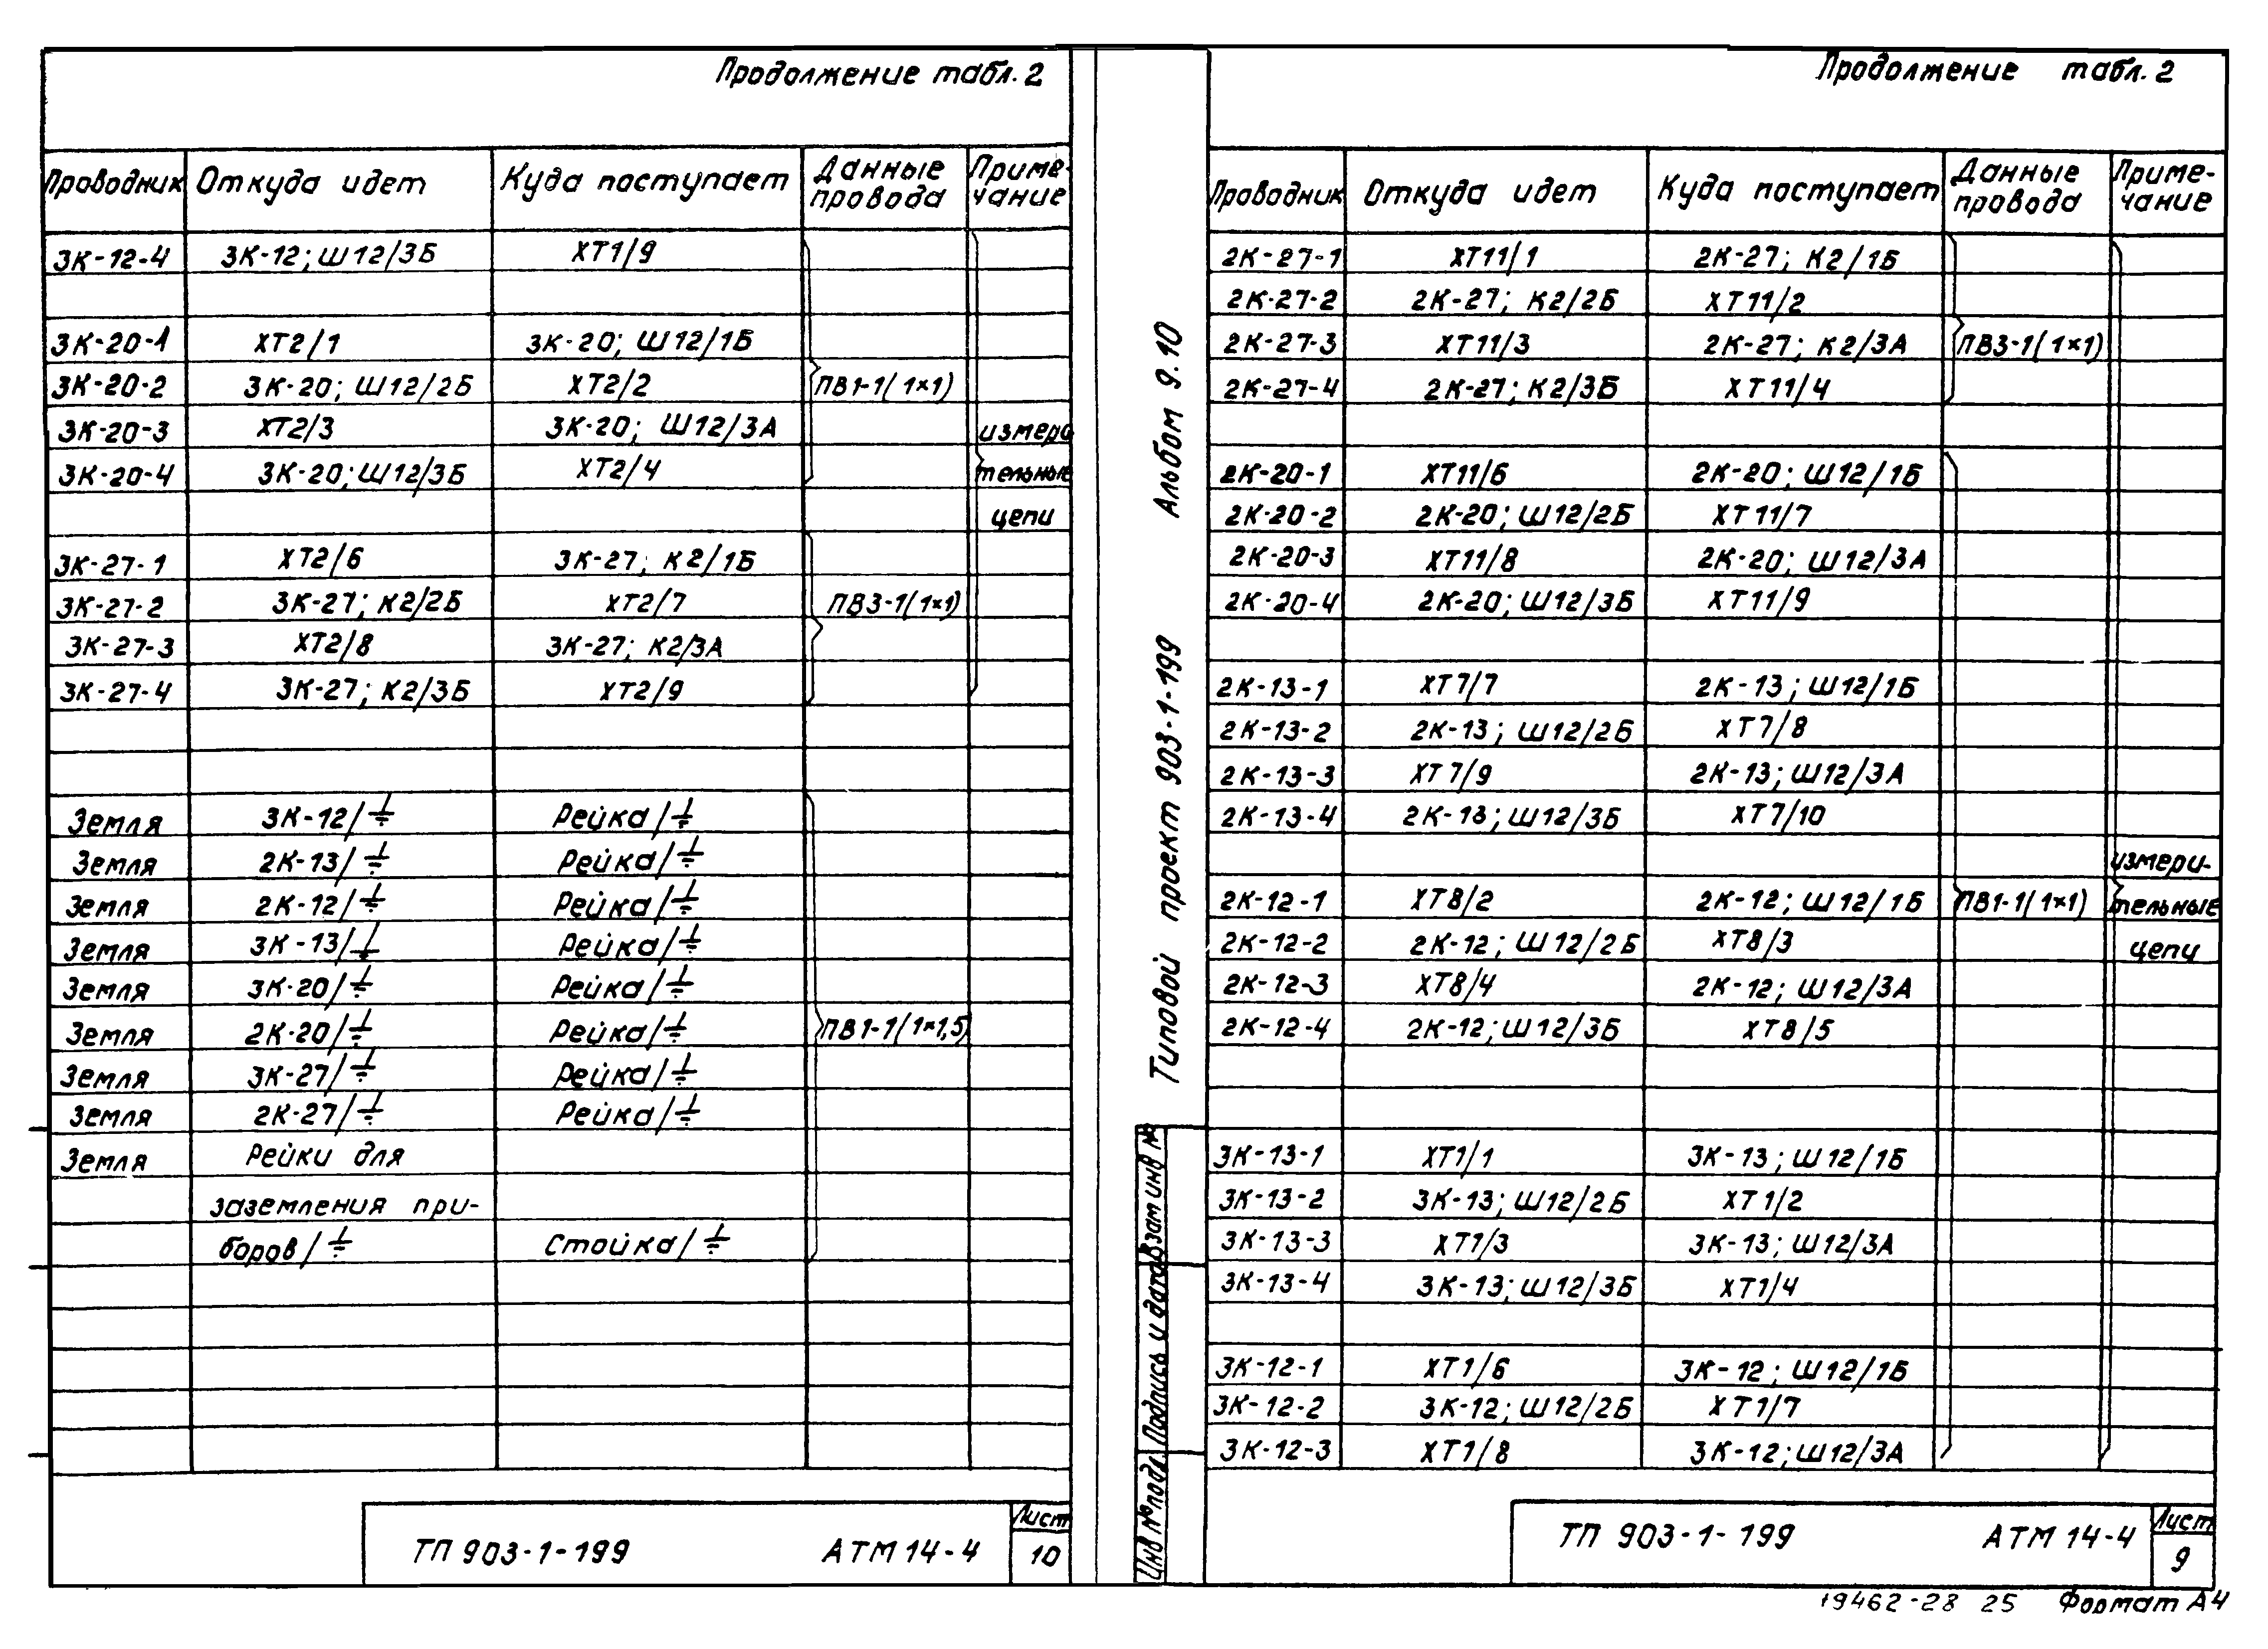 Продолжение табл. 2
Проводник Откуда идет Куда поступает Данные провода Примечание
3К-12-4 3К-12; Ш12/3Б ХТ1/9
3К-20-1 ХТ2/1 3К-20; Ш12/1Б
3К-20-2 3К-20; Ш12/2Б ХТ2/2 ПВ1-1(1×1)
3К-20-3 ХТ2/3 3К-20; Ш12/3А измери
3К-20-4 3К-20; Ш12/3Б ХТ2/4 тельные
цепи
3К-27-1 ХТ2/6 3К-27; К2/1Б
3К-27-2 3К-27; К2/2Б ХТ2/7 ПВ3-1(1×1)
3К-27-3 ХТ2/8 3К-27; К2/3А
3К-27-4 3К-27; К2/3Б ХТ2/9
Земля 3К-12/⏚ Рейка/⏚
Земля 2К-13/⏚ Рейка/⏚
Земля 2К-12/⏚ Рейка/⏚
Земля 3К-13/⏚ Рейка/⏚
Земля 3К-20/⏚ Рейка/⏚
Земля 2К-20/⏚ Рейка/⏚ ПВ1-1(1×1,5)
Земля 3К-27/⏚ Рейка/⏚
Земля 2К-27/⏚ Рейка/⏚
Земля Рейки для
заземления при-
боров/⏚ Стойка/⏚
ТП 903-1-199 АТМ 14-4
Лист
10
Альбом 9.10
Типовой проект 903-1-199
Взам инв №
Подпись и дата
Инв № подл.
Продолжение табл. 2
Проводник Откуда идет Куда поступает Данные провода Приме-чание
2К-27-1 ХТ11/1 2К-27; К2/1Б
2К-27-2 2К-27; К2/2Б ХТ11/2
2К-27-3 ХТ11/3 2К-27; К2/3А ПВ3-1(1×1)
2К-27-4 2К-27; К2/3Б ХТ11/4
2К-20-1 ХТ11/6 2К-20; Ш12/1Б
2К-20-2 2К-20; Ш12/2Б ХТ11/7
2К-20-3 ХТ11/8 2К-20; Ш12/3А
2К-20-4 2К-20; Ш12/3Б ХТ11/9
2К-13-1 ХТ7/7 2К-13; Ш12/1Б
2К-13-2 2К-13; Ш12/2Б ХТ7/8
2К-13-3 ХТ7/9 2К-13; Ш12/3А
2К-13-4 2К-13; Ш12/3Б ХТ7/10
измери-
2К-12-1 ХТ8/2 2К-12; Ш12/1Б ПВ1-1(1×1) тельные
2К-12-2 2К-12; Ш12/2Б ХТ8/3 цепи
2К-12-3 ХТ8/4 2К-12; Ш12/3А
2К-12-4 2К-12; Ш12/3Б ХТ8/5
3К-13-1 ХТ1/1 3К-13; Ш12/1Б
3К-13-2 3К-13; Ш12/2Б ХТ1/2
3К-13-3 ХТ1/3 3К-13; Ш12/3А
3К-13-4 3К-13; Ш12/3Б ХТ1/4
3К-12-1 ХТ1/6 3К-12; Ш12/1Б
3К-12-2 3К-12; Ш12/2Б ХТ1/7
3К-12-3 ХТ1/8 3К-12; Ш12/3А
ТП 903-1-199 АТМ 14-4
Лист
9
19462-28 25 Формат А4